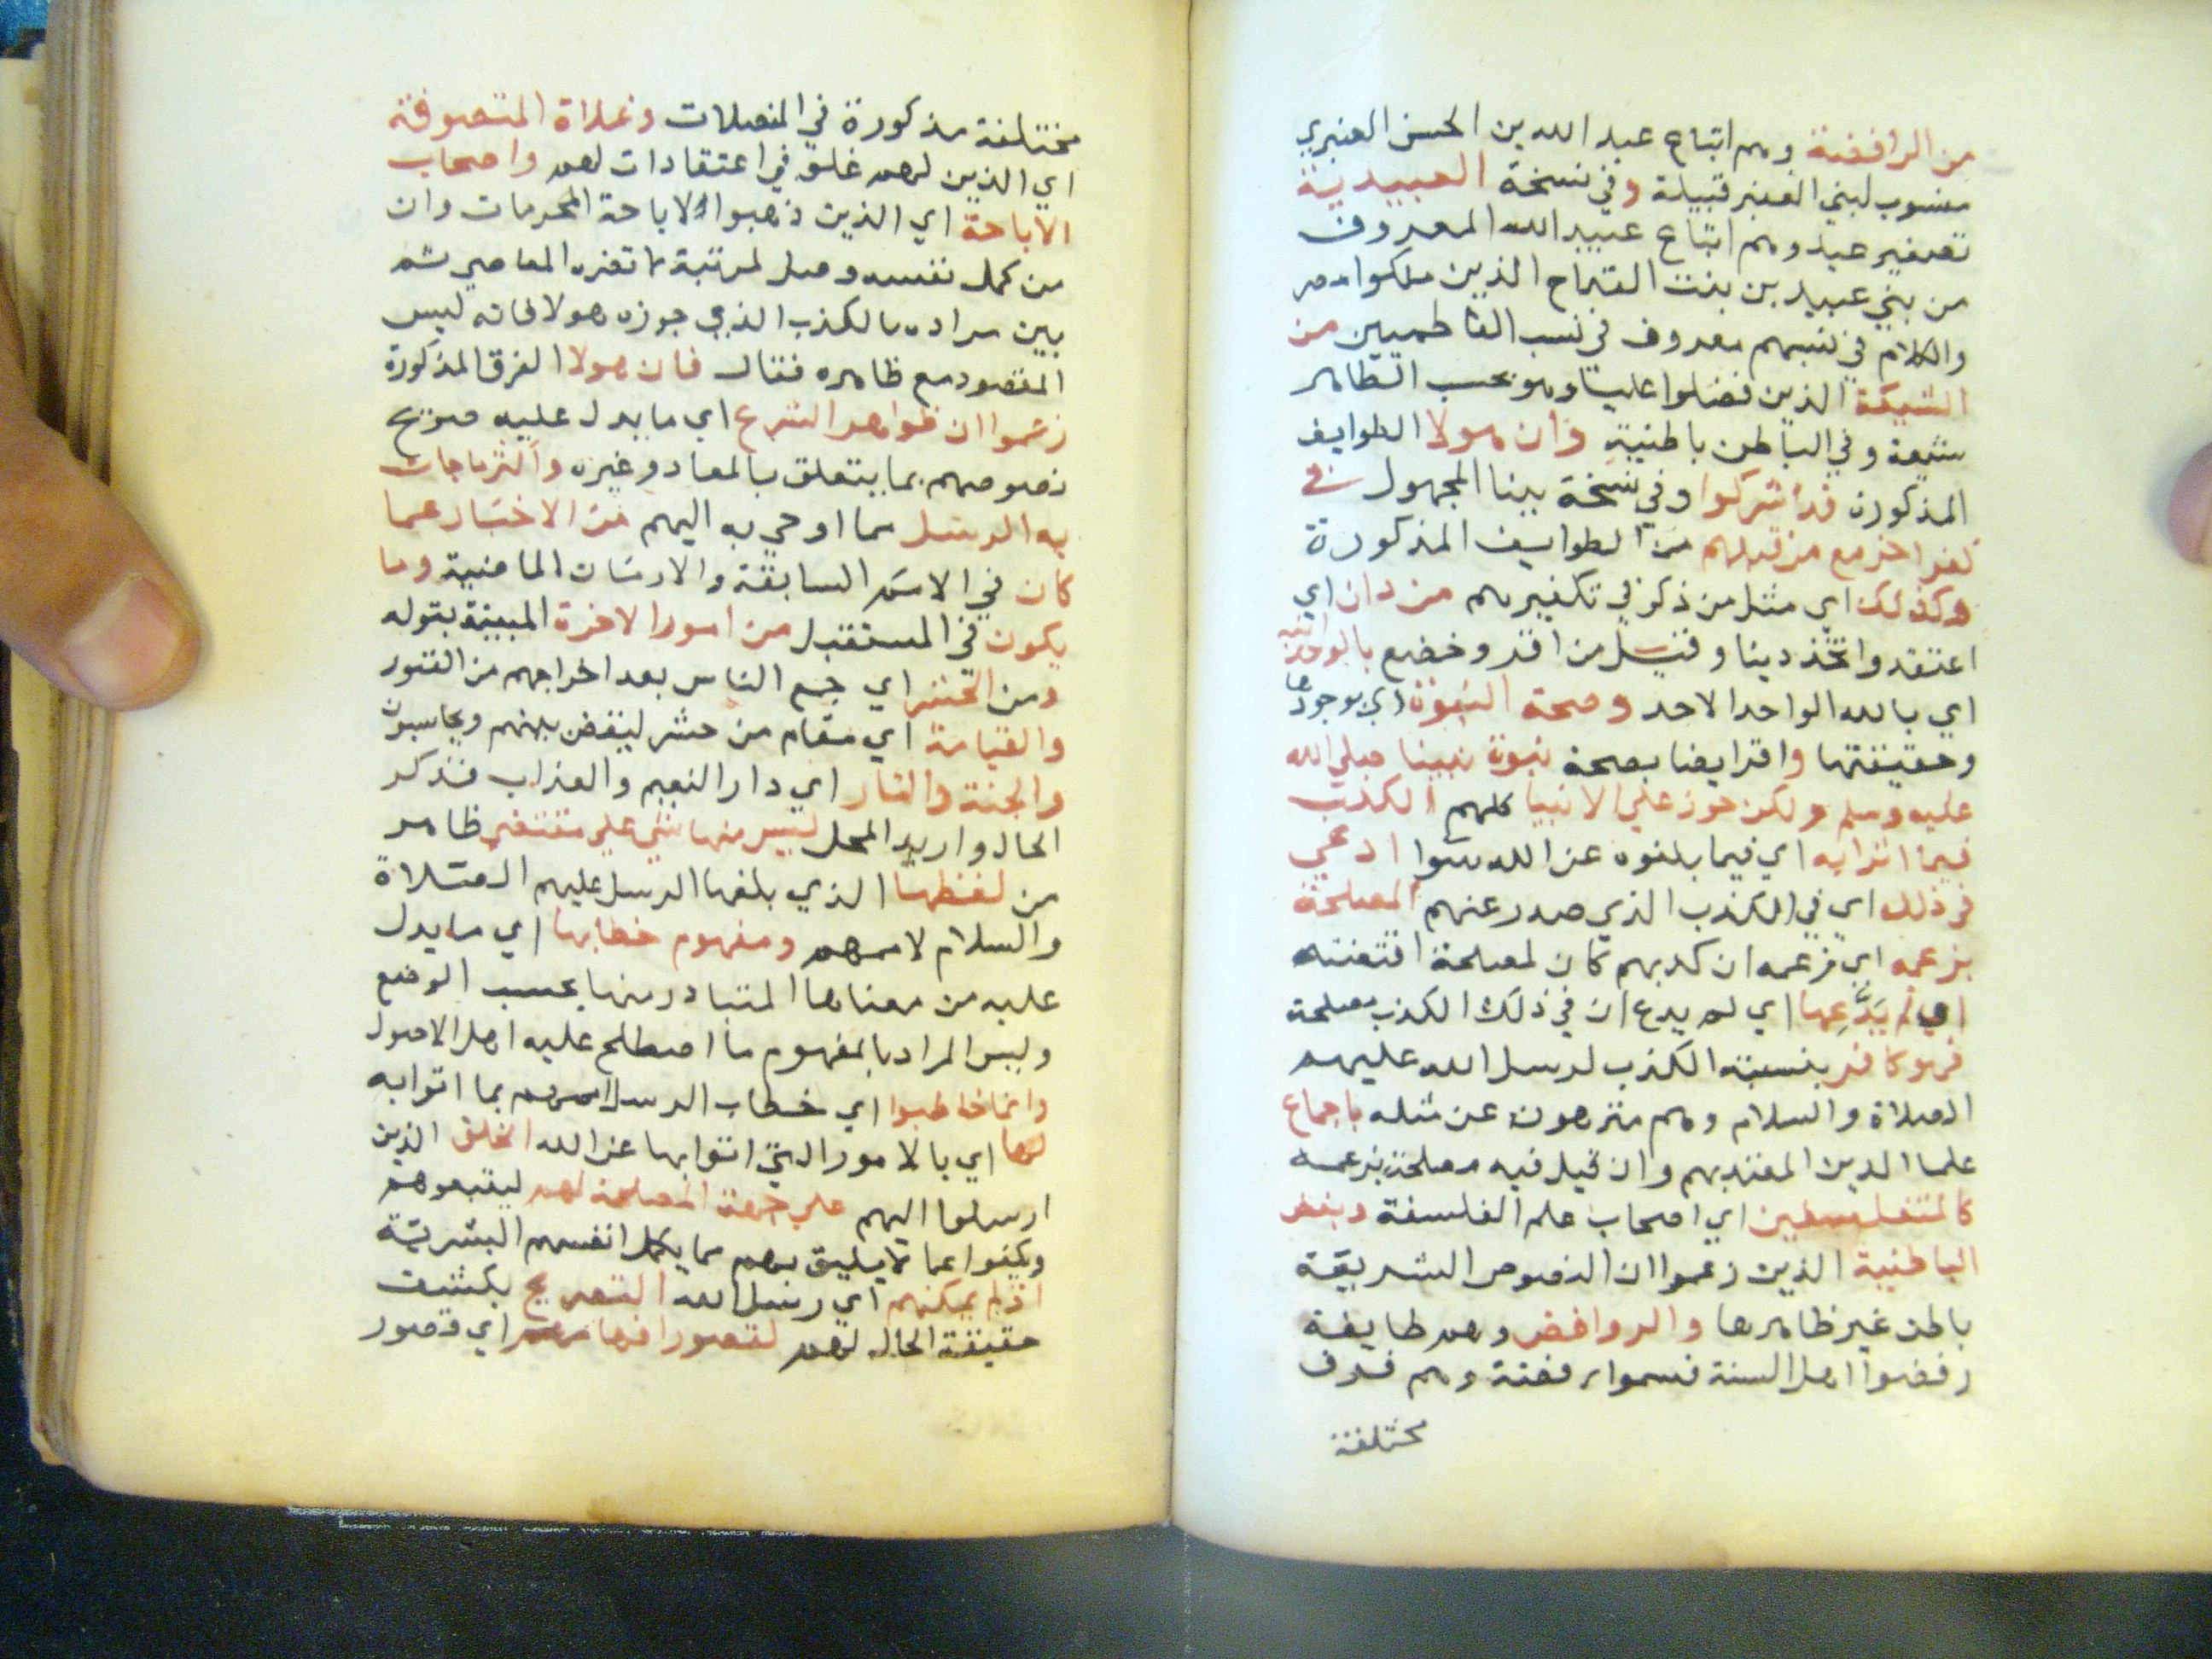 من الرافضة وهم اتباع عبد الله بن الحسن العنبري
منسوب لبني العنبر قبيلة وفي نسخة العبيدية
تصغير عبد وهم اتباع عبيد الله المعروف
من بني عبيد بن بنت القداح الذين ملكوا مصر
والكلام في نسبهم معروف في نسب الفاطميين من
الشيعة الذين فضلوا عليا وهو بحسب الظاهر
شيعة وفي الباطن باطنية وان هولا الطوايف
المذكورة قد اشركوا وفي نسخة ببنا المجهول في
كفر اخر مع من قبلهم من الطوايف المذكورة
وكذلك اي مثل من ذكر في تكفيرهم من دان اي
اعتقد واتخذ دينا وقيل من اقر وخضع بالوحدانية
اي بالله الواحد الاحد وصحة النبوة اي بوجودها
وحقيقتها واقر ايضا بصحة نبوة نبينا صلي الله
عليه وسلم ولكن جوز علي الانبيا كلهم الكذب
فيما اتوا به اي فيما بلغوه عن الله سوا ادعي
في ذلك اي في الكذب الذي صدر عنهم المصلحة
بزعمه اي في زعمه ان كذبهم كان لمصلحة اقتضته
او لم يدعها اي لم يدع ان في ذلك الكذب مصلحة
فهو كافر بنسبته الكذب لرسل الله عليهم
الصلاة والسلام وهم منزهون عن مثله باجماع
علما الدين المقتدى بهم وان قيل فيه مصلحة بزعمه
كالمتفلسفين اي اصحاب علم الفلسفة وبعض
الباطنية الذين زعموا ان النصوص الشريفة
باطن غير ظاهرها والروافض وهم طايفة
رفضوا اهل السنة فسموا رفضة وهم فرق
مختلفة
مختلفة مذكورة في المفصلات وغلاة المتصوفة
اي الذين لهم غلو في اعتقادات لهم واصحاب
الاباحة اي الذين ذهبوا لاباحة المحرمات وان
من كمل نفسه وصل لمرتبة لا تضره المعاصي ثم
بين مراده بالكذب الذي جوزه هولا فانه ليس
المقصود مع ظاهره فقال فان هولا الفرق المذكورة
زعموا ان ظواهر الشرع اي ما يدل عليه صريح
نصوصهم بما يتعلق بالمعاد وغيره واكثر ما جات
به الرسل مما اوحي به اليهم من الاخبار عما
كان في الامم السابقة والازمان الماضية وما
يكون في المستقبل من امور الاخرة المبينة بقوله
ومن الحشر اي جمع الناس بعد اخراجهم من القبور
والقيامة اي مقام من حشر ليقضي بينهم ويحاسبون
والجنة والنار اي دار النعيم والعذاب فذكر
الحال واريد المحل ليس منها شي علي مقتضي ظاهر
من لفظها الذي بلغها الرسل عليهم الصلاة
والسلام لاممهم ومفهوم خطابها اي ما يدل
عليه من معناها المتبادر منها بحسب الوضع
وليس المراد بالمفهوم ما اصطلح عليه اهل الاصول
وانما خاطبوا اي خطاب الرسل لاممهم بما اتوا به
بها اي بالامور التي اتوا بها عن الله الخلق الذين
ارسلوا اليهم علي جهة المصلحة لهم ليتبعوهم
ويكفوا عما لا يليق بهم مما يكمل انفسهم البشرية
اذ لم يمكنهم اي رسل الله التصريح بكشف
حقيقة الحال لهم لقصور افهامهم اي قصور